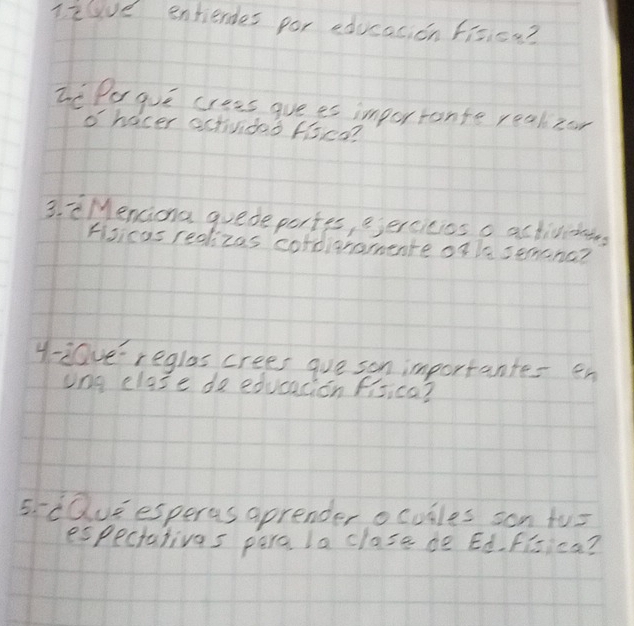 1-¿Qué entiendes por educación física?
2-¿Por qué crees que es importante realizar
ó hacer actividad física?
3.-¿Menciona que deportes, ejercicios o actividades
físicas realizas cotdianamente o a la semana?
4-¿Qué reglas crees que son importantes en
una clase de educación física?
5.-¿Qué esperas aprender o cuáles son tus
espectativas para la clase de Ed. física?